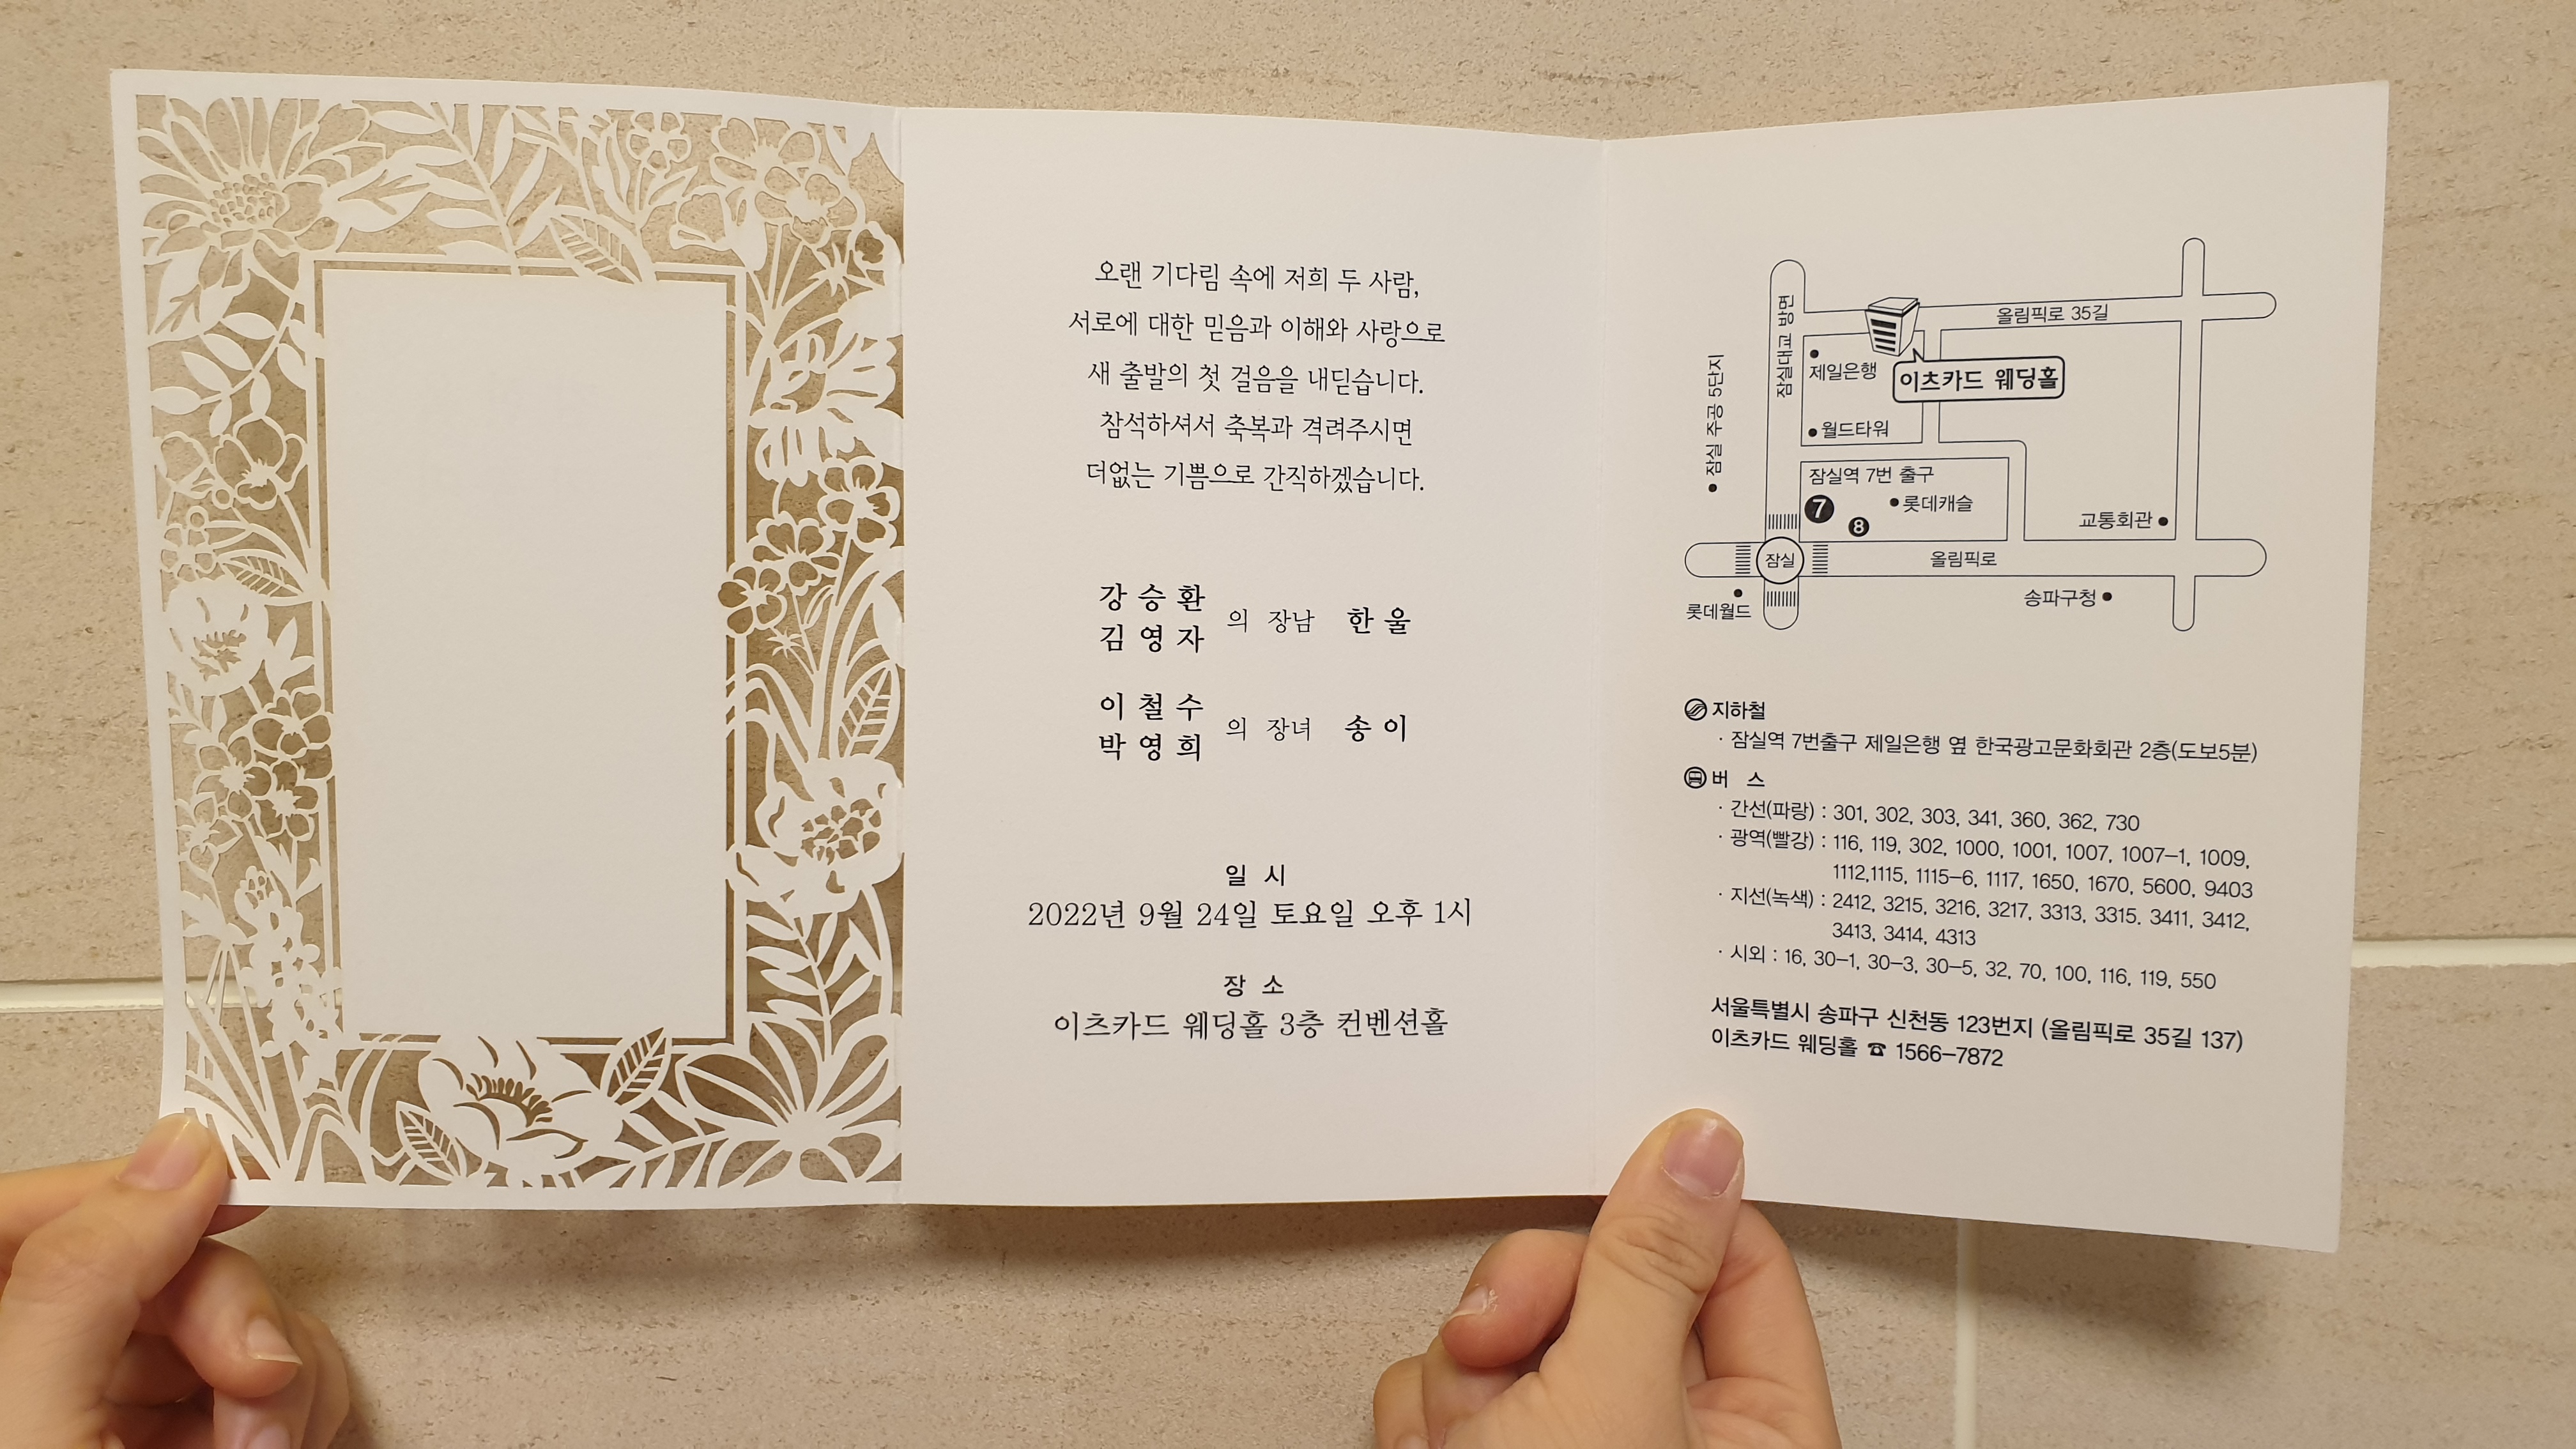 오랜 기다림 속에 저희 두 사람,
서로에 대한 믿음과 이해와 사랑으로
새 출발의 첫 걸음을 내딛습니다.
참석하셔서 축복과 격려주시면
더없는 기쁨으로 간직하겠습니다.
강승환
김영자
의 장남 한울
이철수
박영희
의 장녀 송이
일 시
2022년 9월 24일 토요일 오후 1시
장 소
이츠카드 웨딩홀 3층 컨벤션홀
잠실대교 방면
올림픽로 35길
제일은행
이츠카드 웨딩홀
잠실 주공 5단지
월드타워
잠실역 7번 출구
7
8
롯데캐슬
교통회관
잠실
올림픽로
롯데월드
송파구청
지하철
· 잠실역 7번출구 제일은행 옆 한국광고문화회관 2층(도보5분)
버 스
· 간선(파랑) : 301, 302, 303, 341, 360, 362, 730
· 광역(빨강) : 116, 119, 302, 1000, 1001, 1007, 1007-1, 1009,
1112,1115, 1115-6, 1117, 1650, 1670, 5600, 9403
· 지선(녹색) : 2412, 3215, 3216, 3217, 3313, 3315. 3411, 3412,
3413, 3414, 4313
· 시외 : 16, 30-1, 30-3, 30-5, 32, 70, 100, 116, 119, 550
서울특별시 송파구 신천동 123번지 (올림픽로 35길 137)
이츠카드 웨딩홀 ☎ 1566-7872